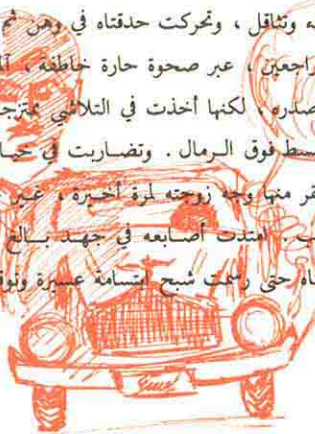 ه وتثاقل ، وتحركت حدقتاه في وهن ثم
راجعين ، عبر صحوة حارة خاطفة ،
صدره ، لكنها أخذت في التلاشي
سط فوق الرمال . وتضاربت في
منها وجه زوجته لمرة أخيرة ،
امتدت أصابعه في جهد بالغ
اه حتى رسمت شبح ابتسامة عسيرة